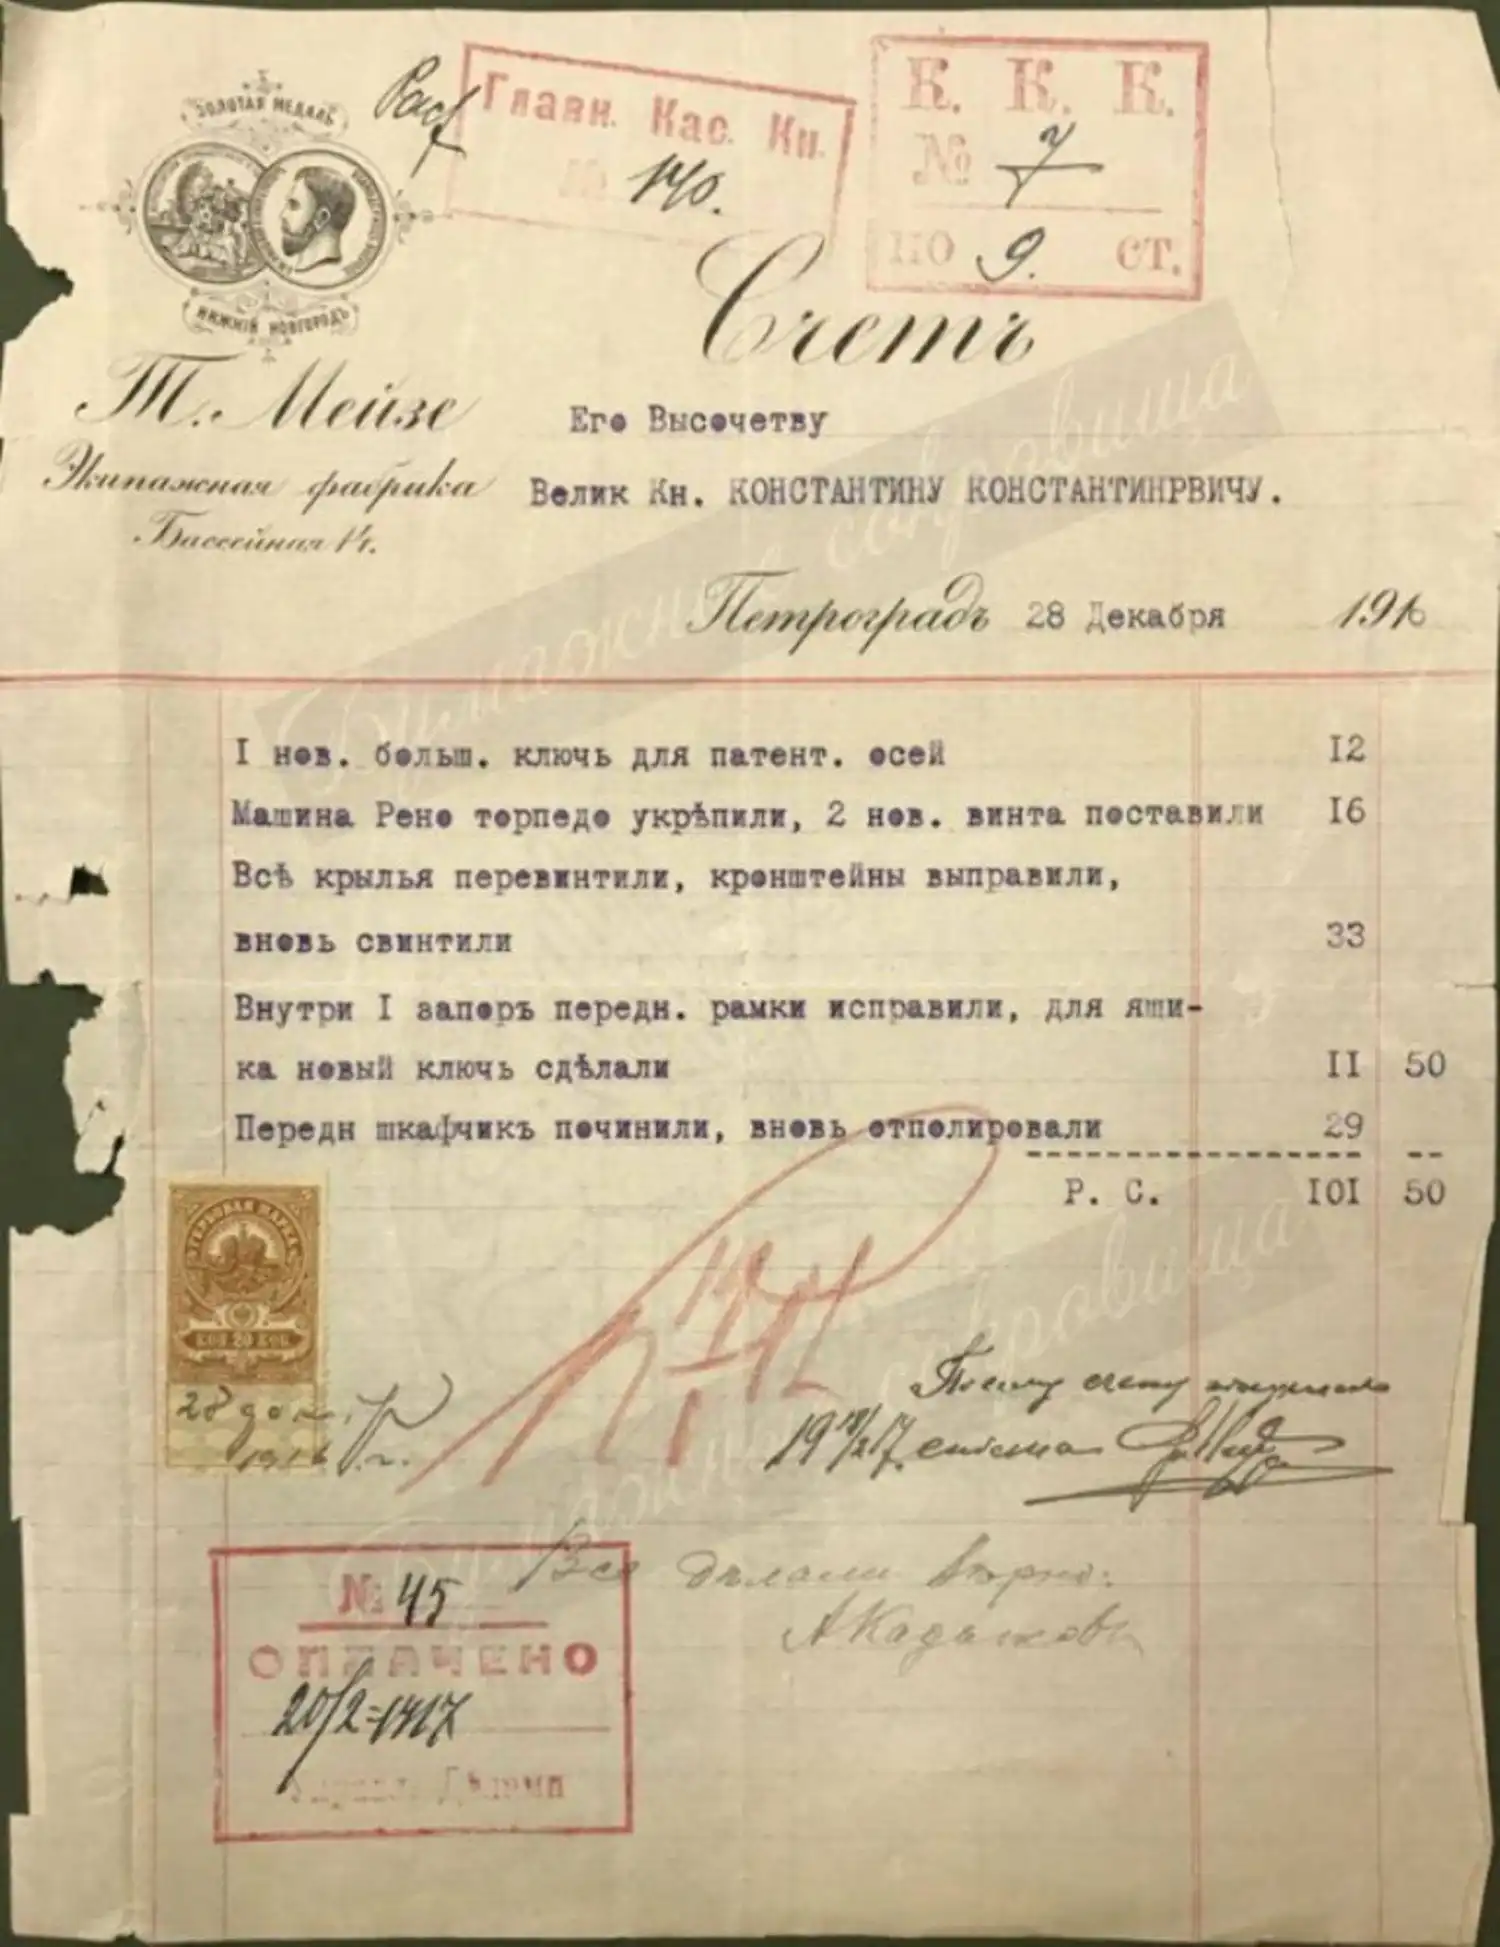 ЗОЛОТАЯ МЕДАЛЬ
НИЖНІЙ НОВГОРОДЪ
Главн. Кас. Кн.
№ 140.
К. К. К.
№ 7
ПО 9. СТ.
Счетъ
Т. Мейзе
Экипажная фабрика
Бассейная 14.
Его Высочетву
Велик Кн. КОНСТАНТИНУ КОНСТАНТИНРВИЧУ.
Петроградъ 28 Декабря 1916
I нов. больш. ключь для патент. осей 12
Машина Рено торпедо укрѣпили, 2 нов. винта поставили I6
Всѣ крылья перевинтили, кронштейны выправили,
вновь свинтили 33
Внутри I запоръ передн. рамки исправили, для ящи-
ка новый ключь сдѣлали II 50
Передн шкафчикъ починили, вновь отполировали 29
Р. С. IOI 50
ГЕРБОВАЯ МАРКА
КОП 20 КОП
28 дек.
1916 г.
По сему счету получилъ
19 18/2 17.
Все дѣлали вѣрно:
№ 45
ОПЛАЧЕНО
20/2=1917
Бумажные сокровища
сокровища